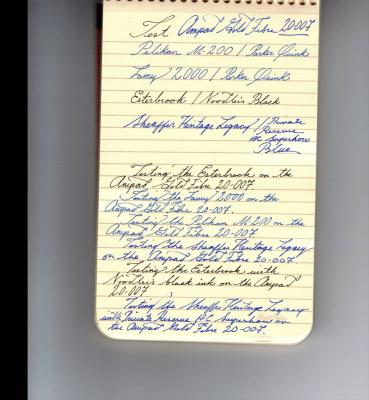 Test Ampad Gold Fibre 20-007
Pelikan M-200 / Parker Quink
Lamy 2000 / Parker Quink
Esterbrook / Noodler's Black
Sheaffer Heritage Legacy / Private
Reserve
DC Supershow
Blue
Testing the Esterbrook on the
Ampad Gold Fibre 20-007.
Testing the Lamy 2000 on the
Ampad Gold Fibre 20-007.
Testing the Pelikan M200 on the
Ampad Gold Fibre 20-007.
Testing the Sheaffer Heritage Legacy
on the Ampad Gold Fibre 20-007.
Testing the Esterbrook with
Noodler's black ink on the Ampad
20-007.
Testing the Sheaffer Heritage Legacy
with Private Reserve DC Supershow on
the Ampad Gold Fibre 20-007.